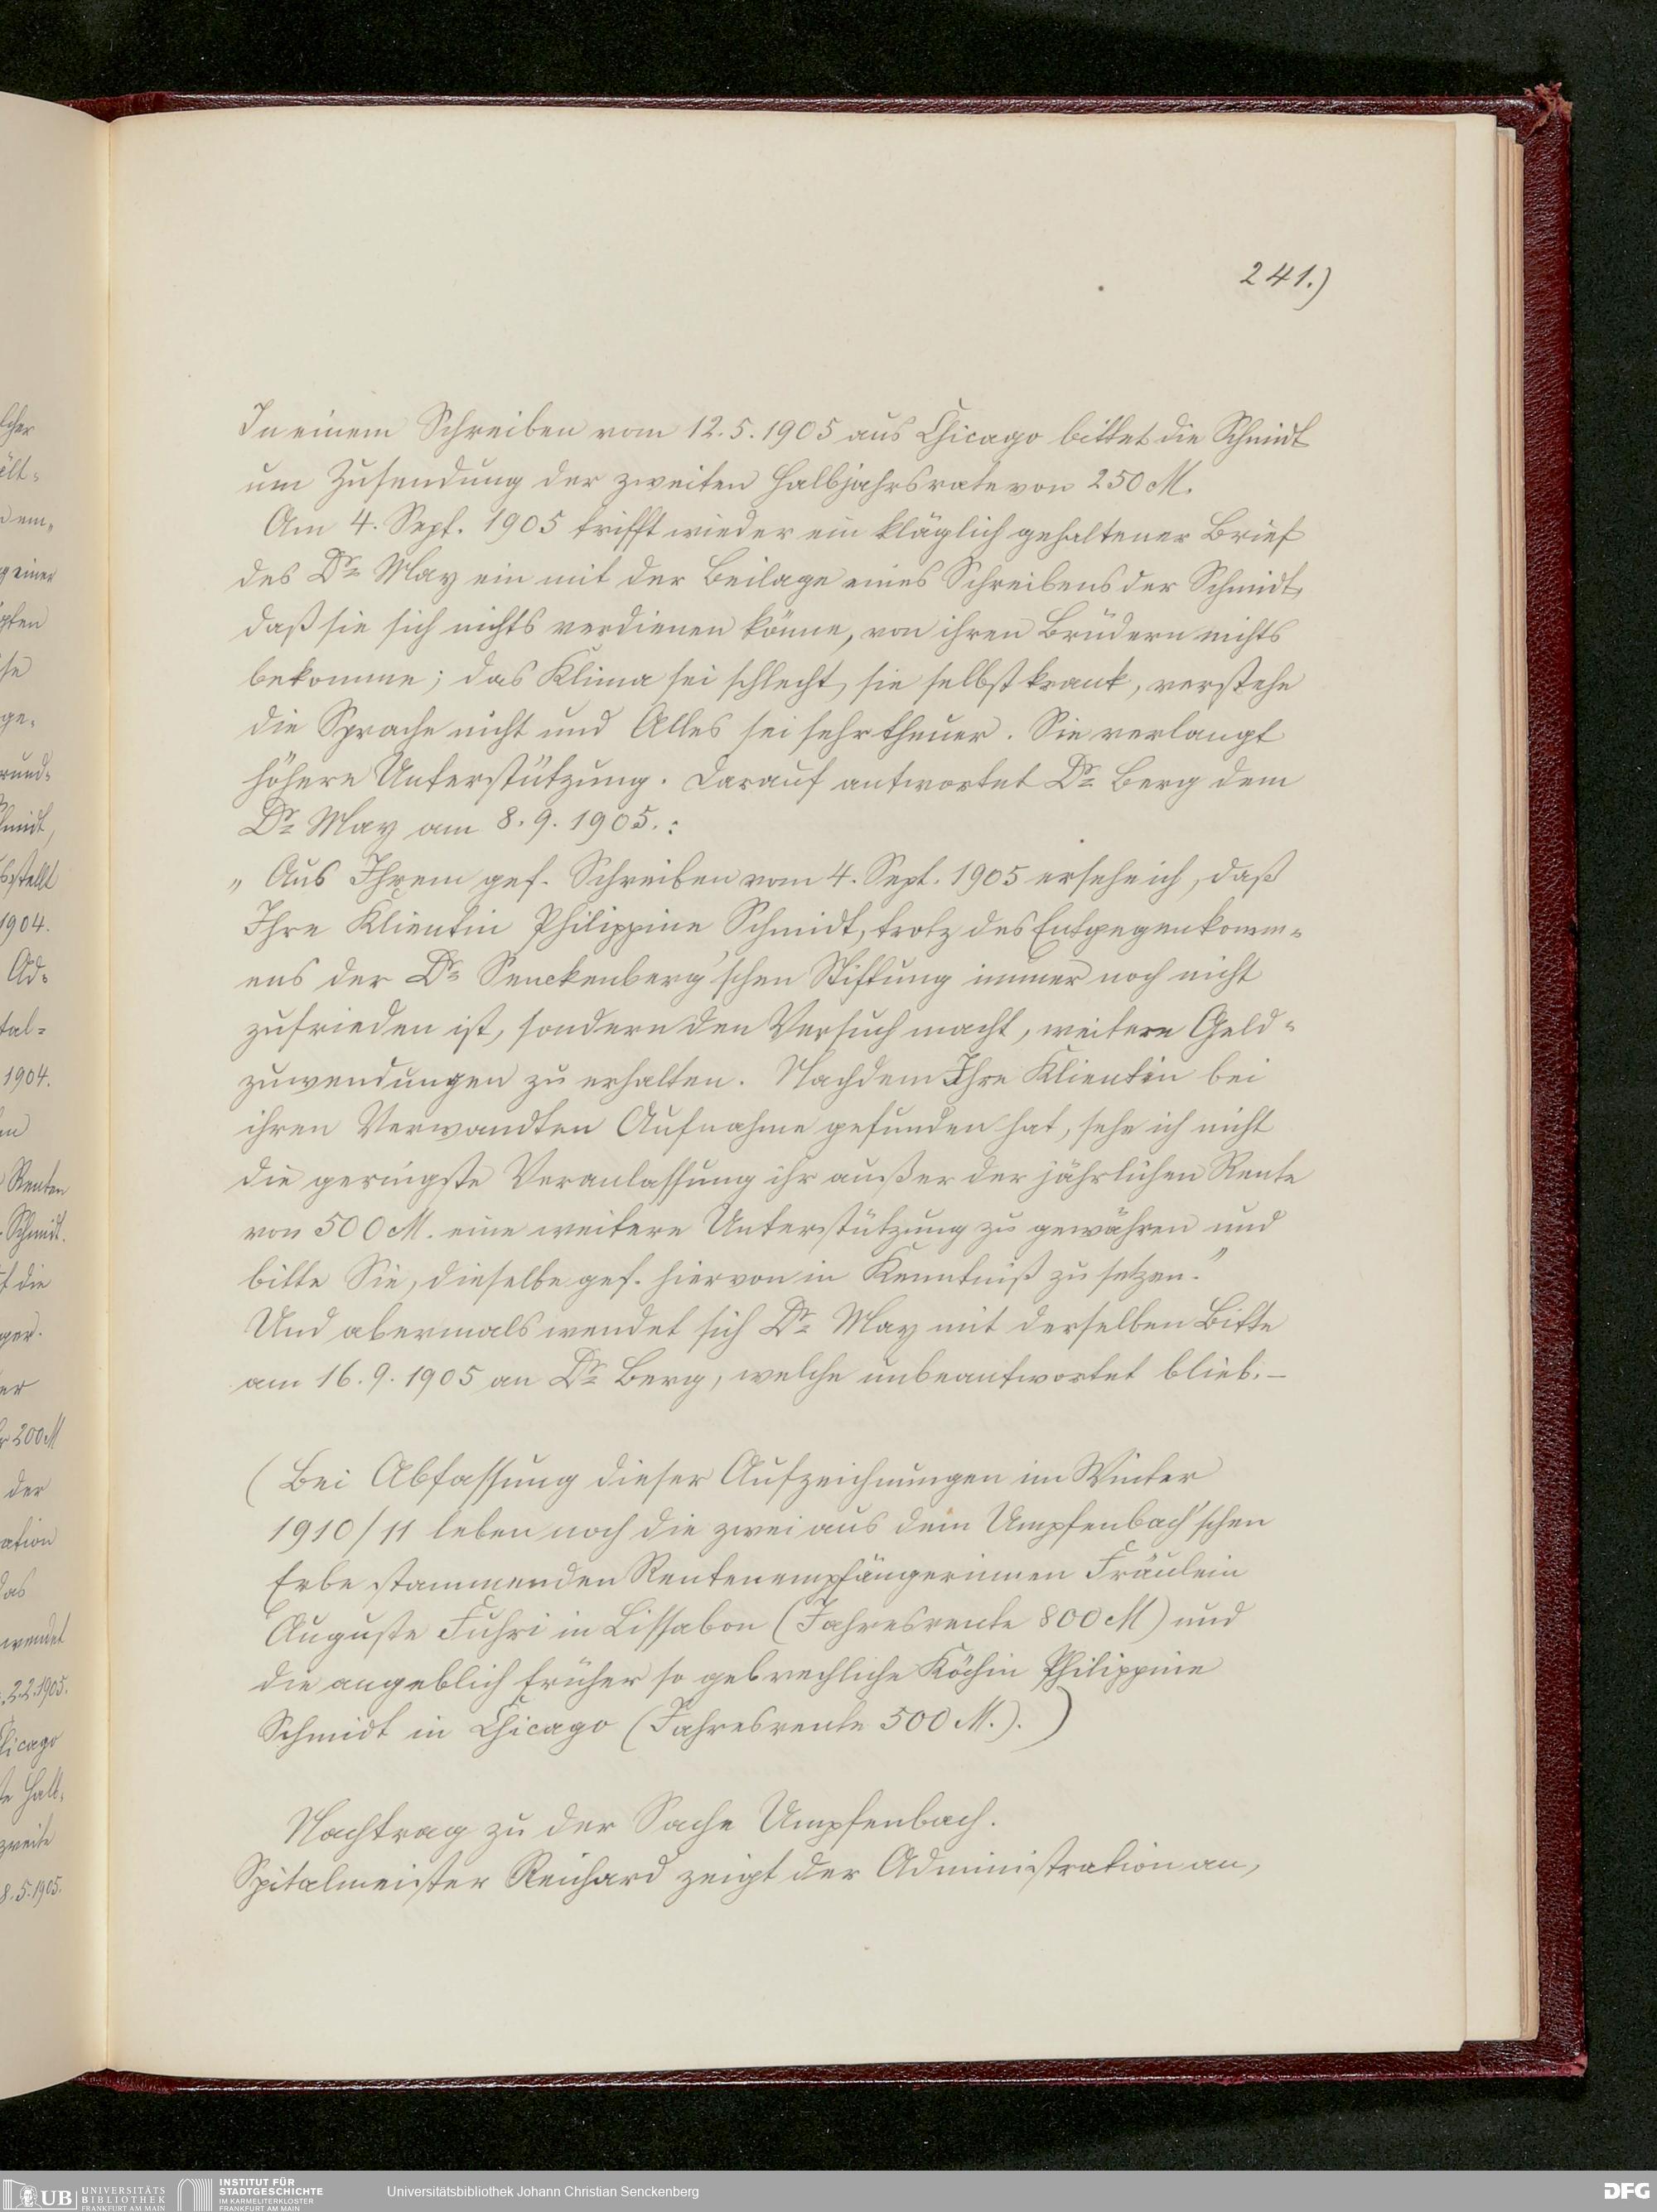 241.)
In einem Schreiben vom 12.5.1905 aus Chicago bittet die Schmidt
um Zusendung der zweiten Halbjahrsrate von 250 M.
Am 4. Sept. 1905 trifft wieder ein kläglich gehaltener Brief
des Dr. May ein mit der Beilage eines Schreibens der Schmidt,
daß sie sich nichts verdienen könne, von ihren Brüdern nichts
bekomme; das Klima sei schlecht, sie selbst krank, verstehe
die Sprache nicht und Alles sei sehr theuer. Sie verlangt
höhere Unterstützung. Darauf antwortet Dr. Berg dem
Dr. May am 8.9.1905.:
„Aus Ihrem gef. Schreiben vom 4. Sept. 1905 ersehe ich, daß
Ihre Klientin Philippine Schmidt, trotz des Entgegenkomm-
ens der Dr. Senckenberg'schen Stiftung immer noch nicht
zufrieden ist, sondern den Versuch macht, weitere Geld-
zuwendungen zu erhalten. Nachdem Ihre Klientin bei
ihren Verwandten Aufnahme gefunden hat, sehe ich nicht
die geringste Veranlassung ihr außer der jährlichen Rente
von 500 M. eine weitere Unterstützung zu gewähren und
bitte Sie, dieselbe gef. hiervon in Kenntniß zu setzen."
Und abermals wendet sich Dr. May mit derselben Bitte
am 16.9.1905 an Dr. Berg, welche unbeantwortet blieb.–
(Bei Abfassung dieser Aufzeichnungen im Winter
1910/11 leben noch die zwei aus dem Umpfenbach'schen
Erbe stammenden Rentenempfängerinnen Fräulein
Auguste Fuhri in Lissabon (Jahresrente 800 M) und
die angeblich früher so gebrechliche Köchin Philippine
Schmidt in Chicago (Jahresrente 500 M.).)
Nachtrag zu der Sache Umpfenbach.
Spitalmeister Reichard zeigt der Administration an,
UB UNIVERSITÄTS BIBLIOTHEK FRANKFURT AM MAIN
INSTITUT FÜR STADTGESCHICHTE IM KARMELITERKLOSTER FRANKFURT AM MAIN
Universitätsbibliothek Johann Christian Senckenberg
DFG